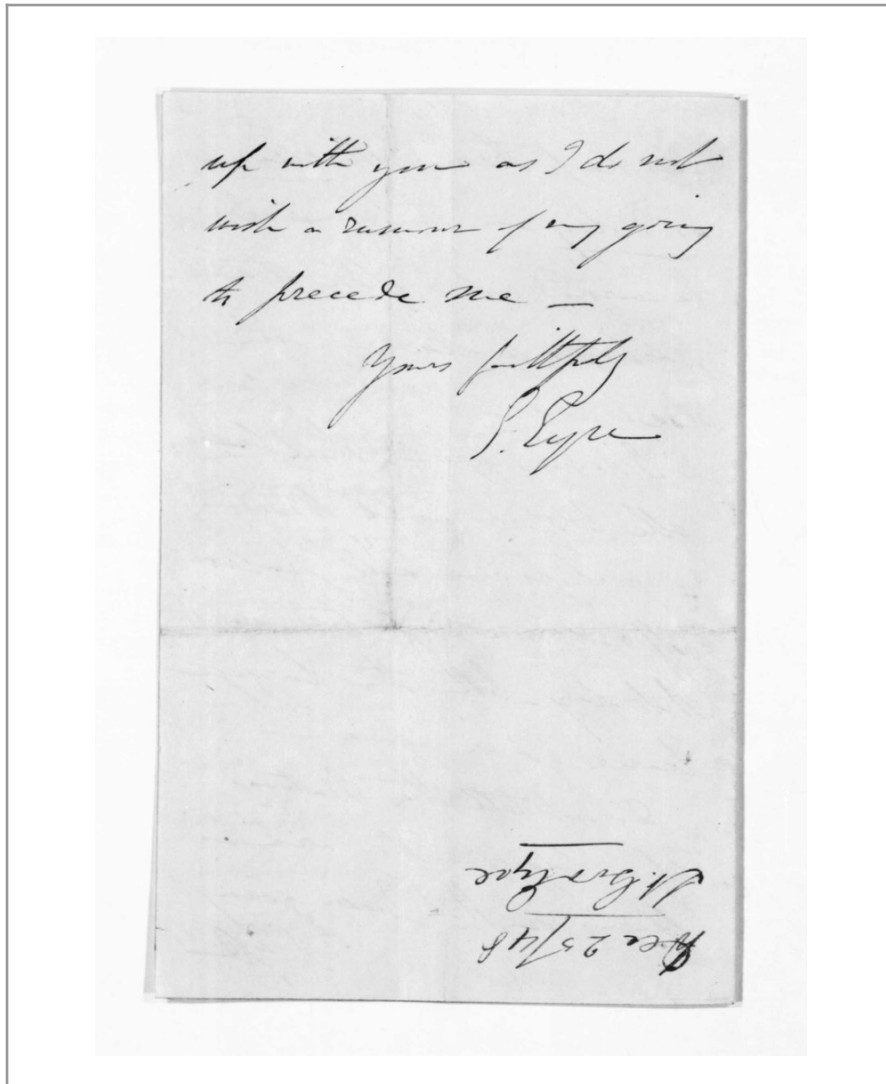 up with you as I do not
wish a rumour of my going
to precede me —
Yours faithfully
E. Eyre
Dec 25/48
Lt. Gov Eyre